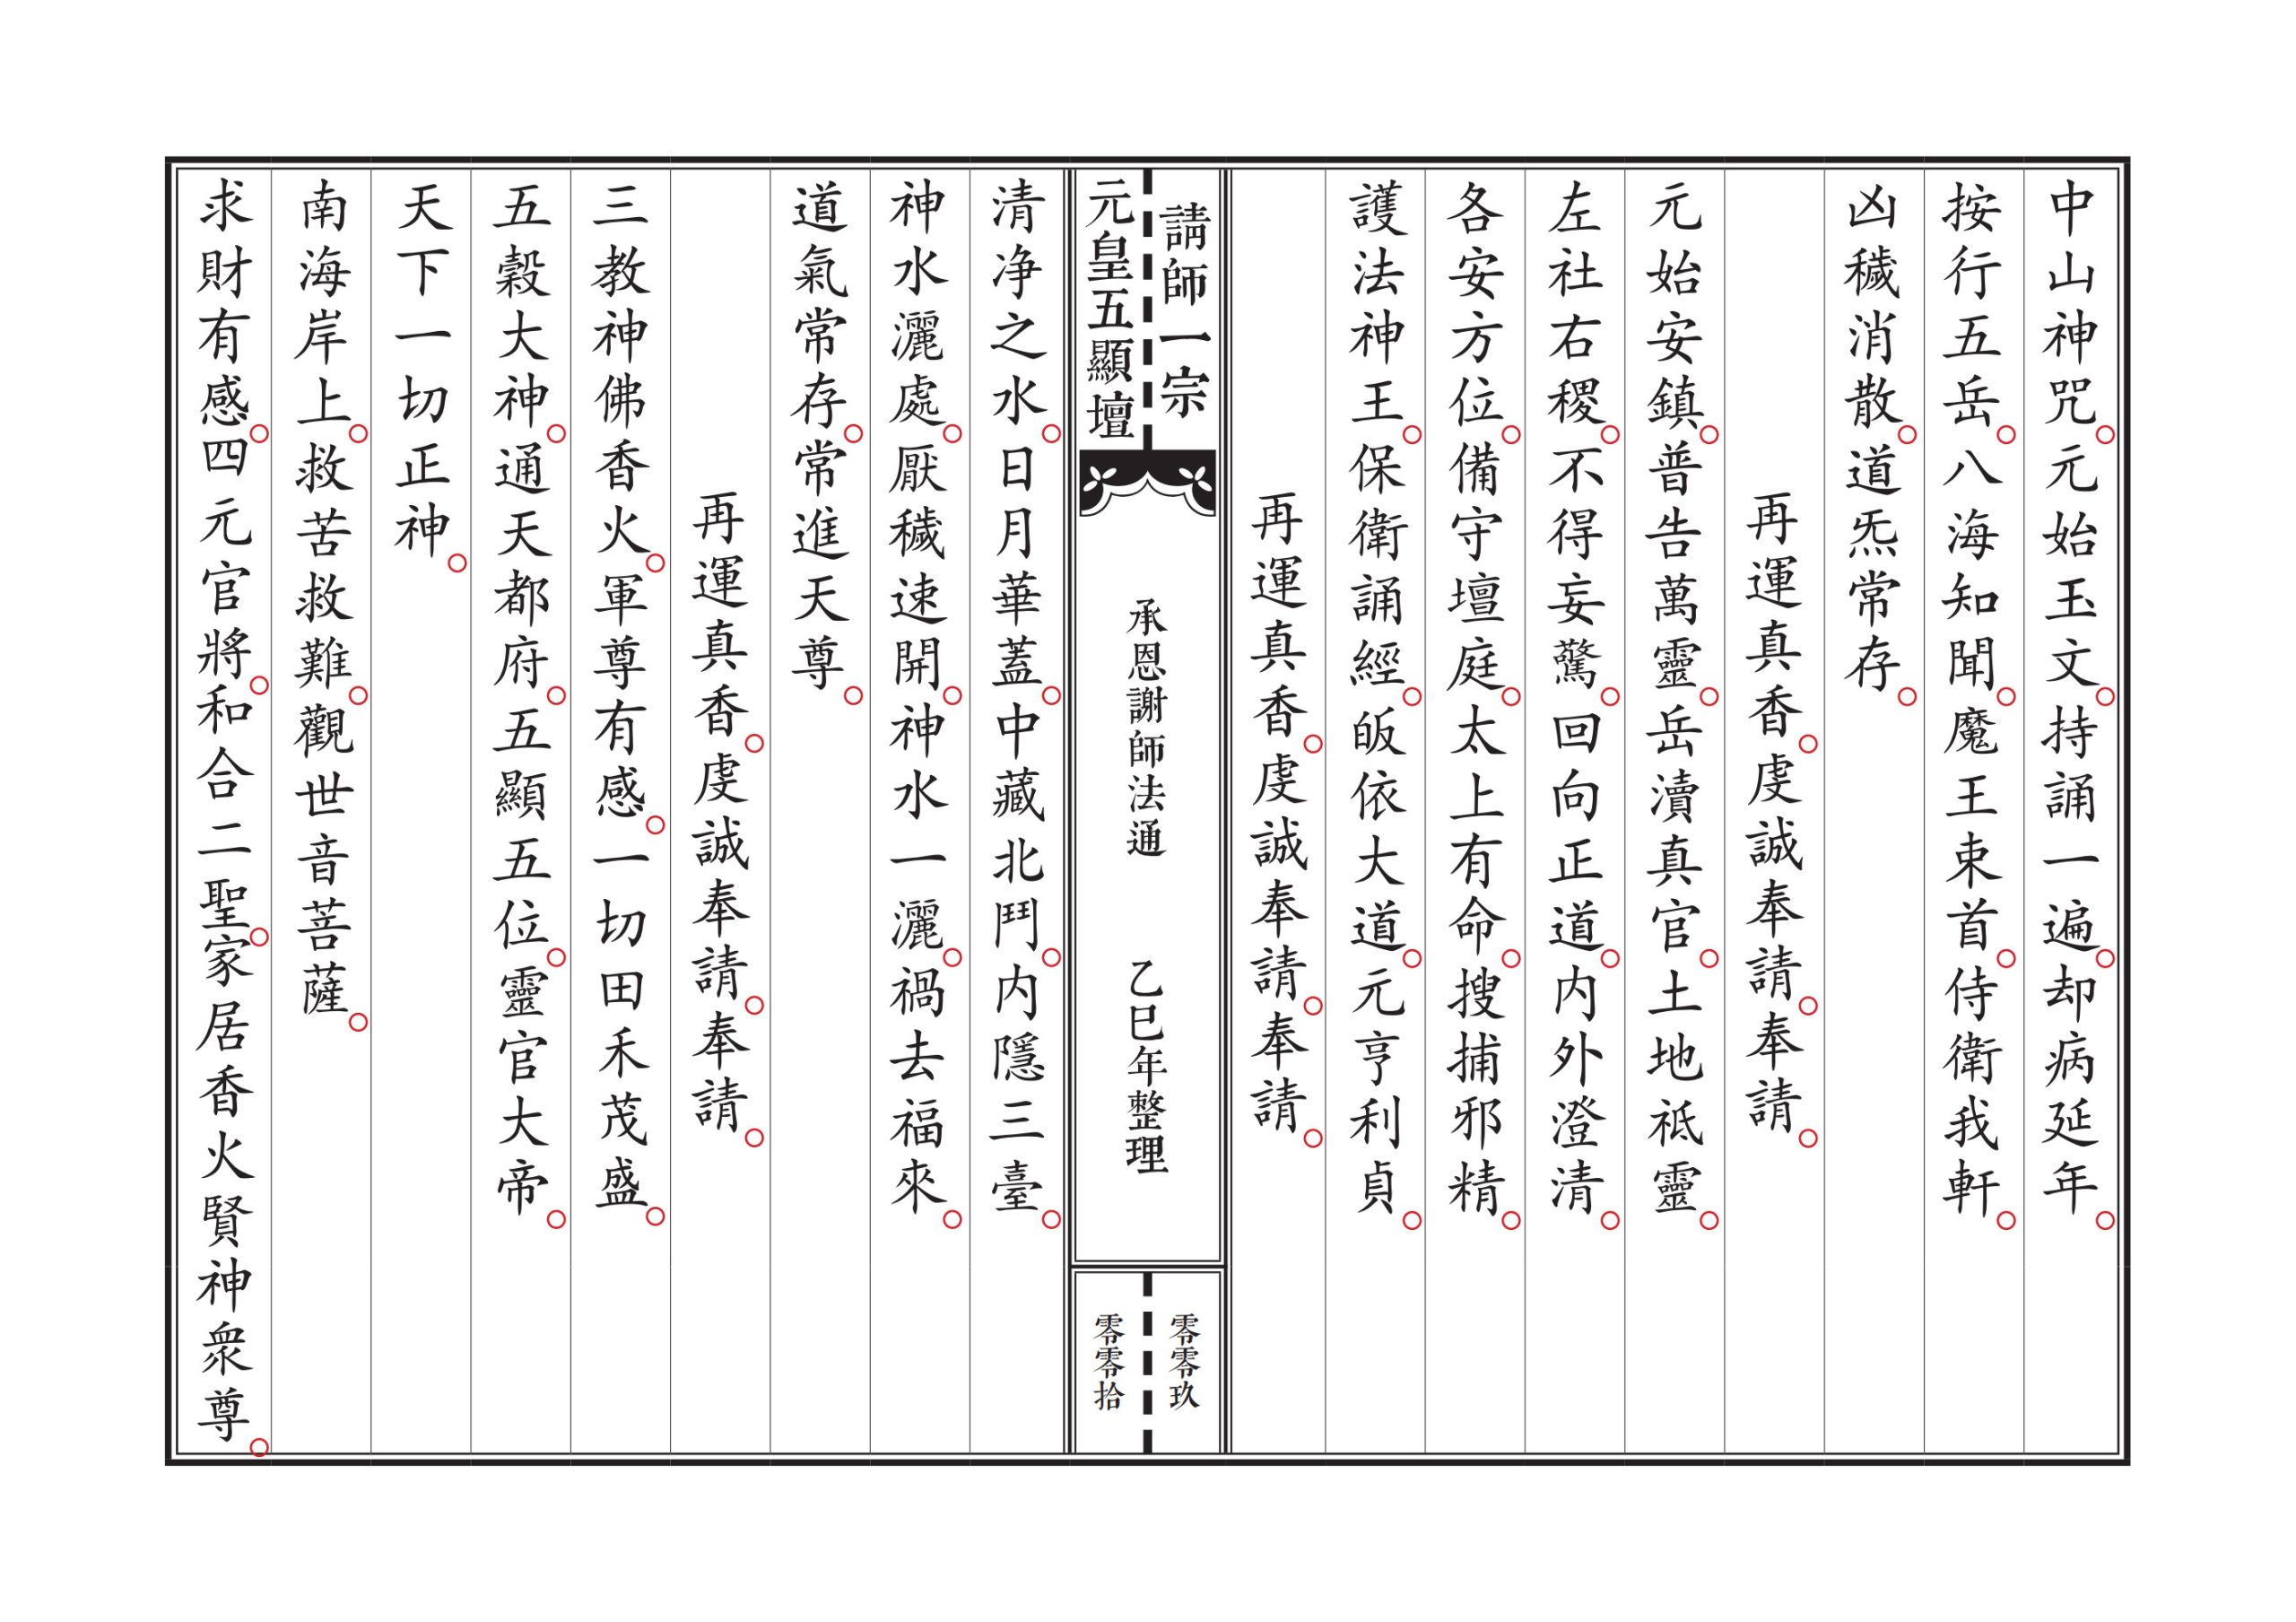 中山神咒。元始玉文。持誦一遍。却病延年。
按行五岳。八海知聞。魔王束首。侍衛我軒。
凶穢消散。道炁常存。
再運真香。虔誠奉請。奉請。
元始安鎮。普告萬靈。岳瀆真官。土地祇靈。
左社右稷。不得妄驚。回向正道。内外澄清。
各安方位。備守壇庭。太上有命。搜捕邪精。
護法神王。保衛誦經。皈依大道。元亨利貞。
再運真香。虔誠奉請。奉請。
請師一宗
元皇五顯壇
承恩謝師法通 乙巳年整理
零零玖
零零拾
清净之水。日月華蓋。中藏北鬥。内隱三臺。
神水灑處。厭穢速開。神水一灑。禍去福來。
道氣常存。常進天尊。
再運真香。虔誠奉請。奉請。
三教神佛香火。軍尊有感。一切田禾茂盛。
五穀大神。通天都府。五顯五位。靈官大帝。
天下一切正神。
南海岸上。救苦救難。觀世音菩薩。
求財有感。四元官將。和合二聖。家居香火賢神衆尊。